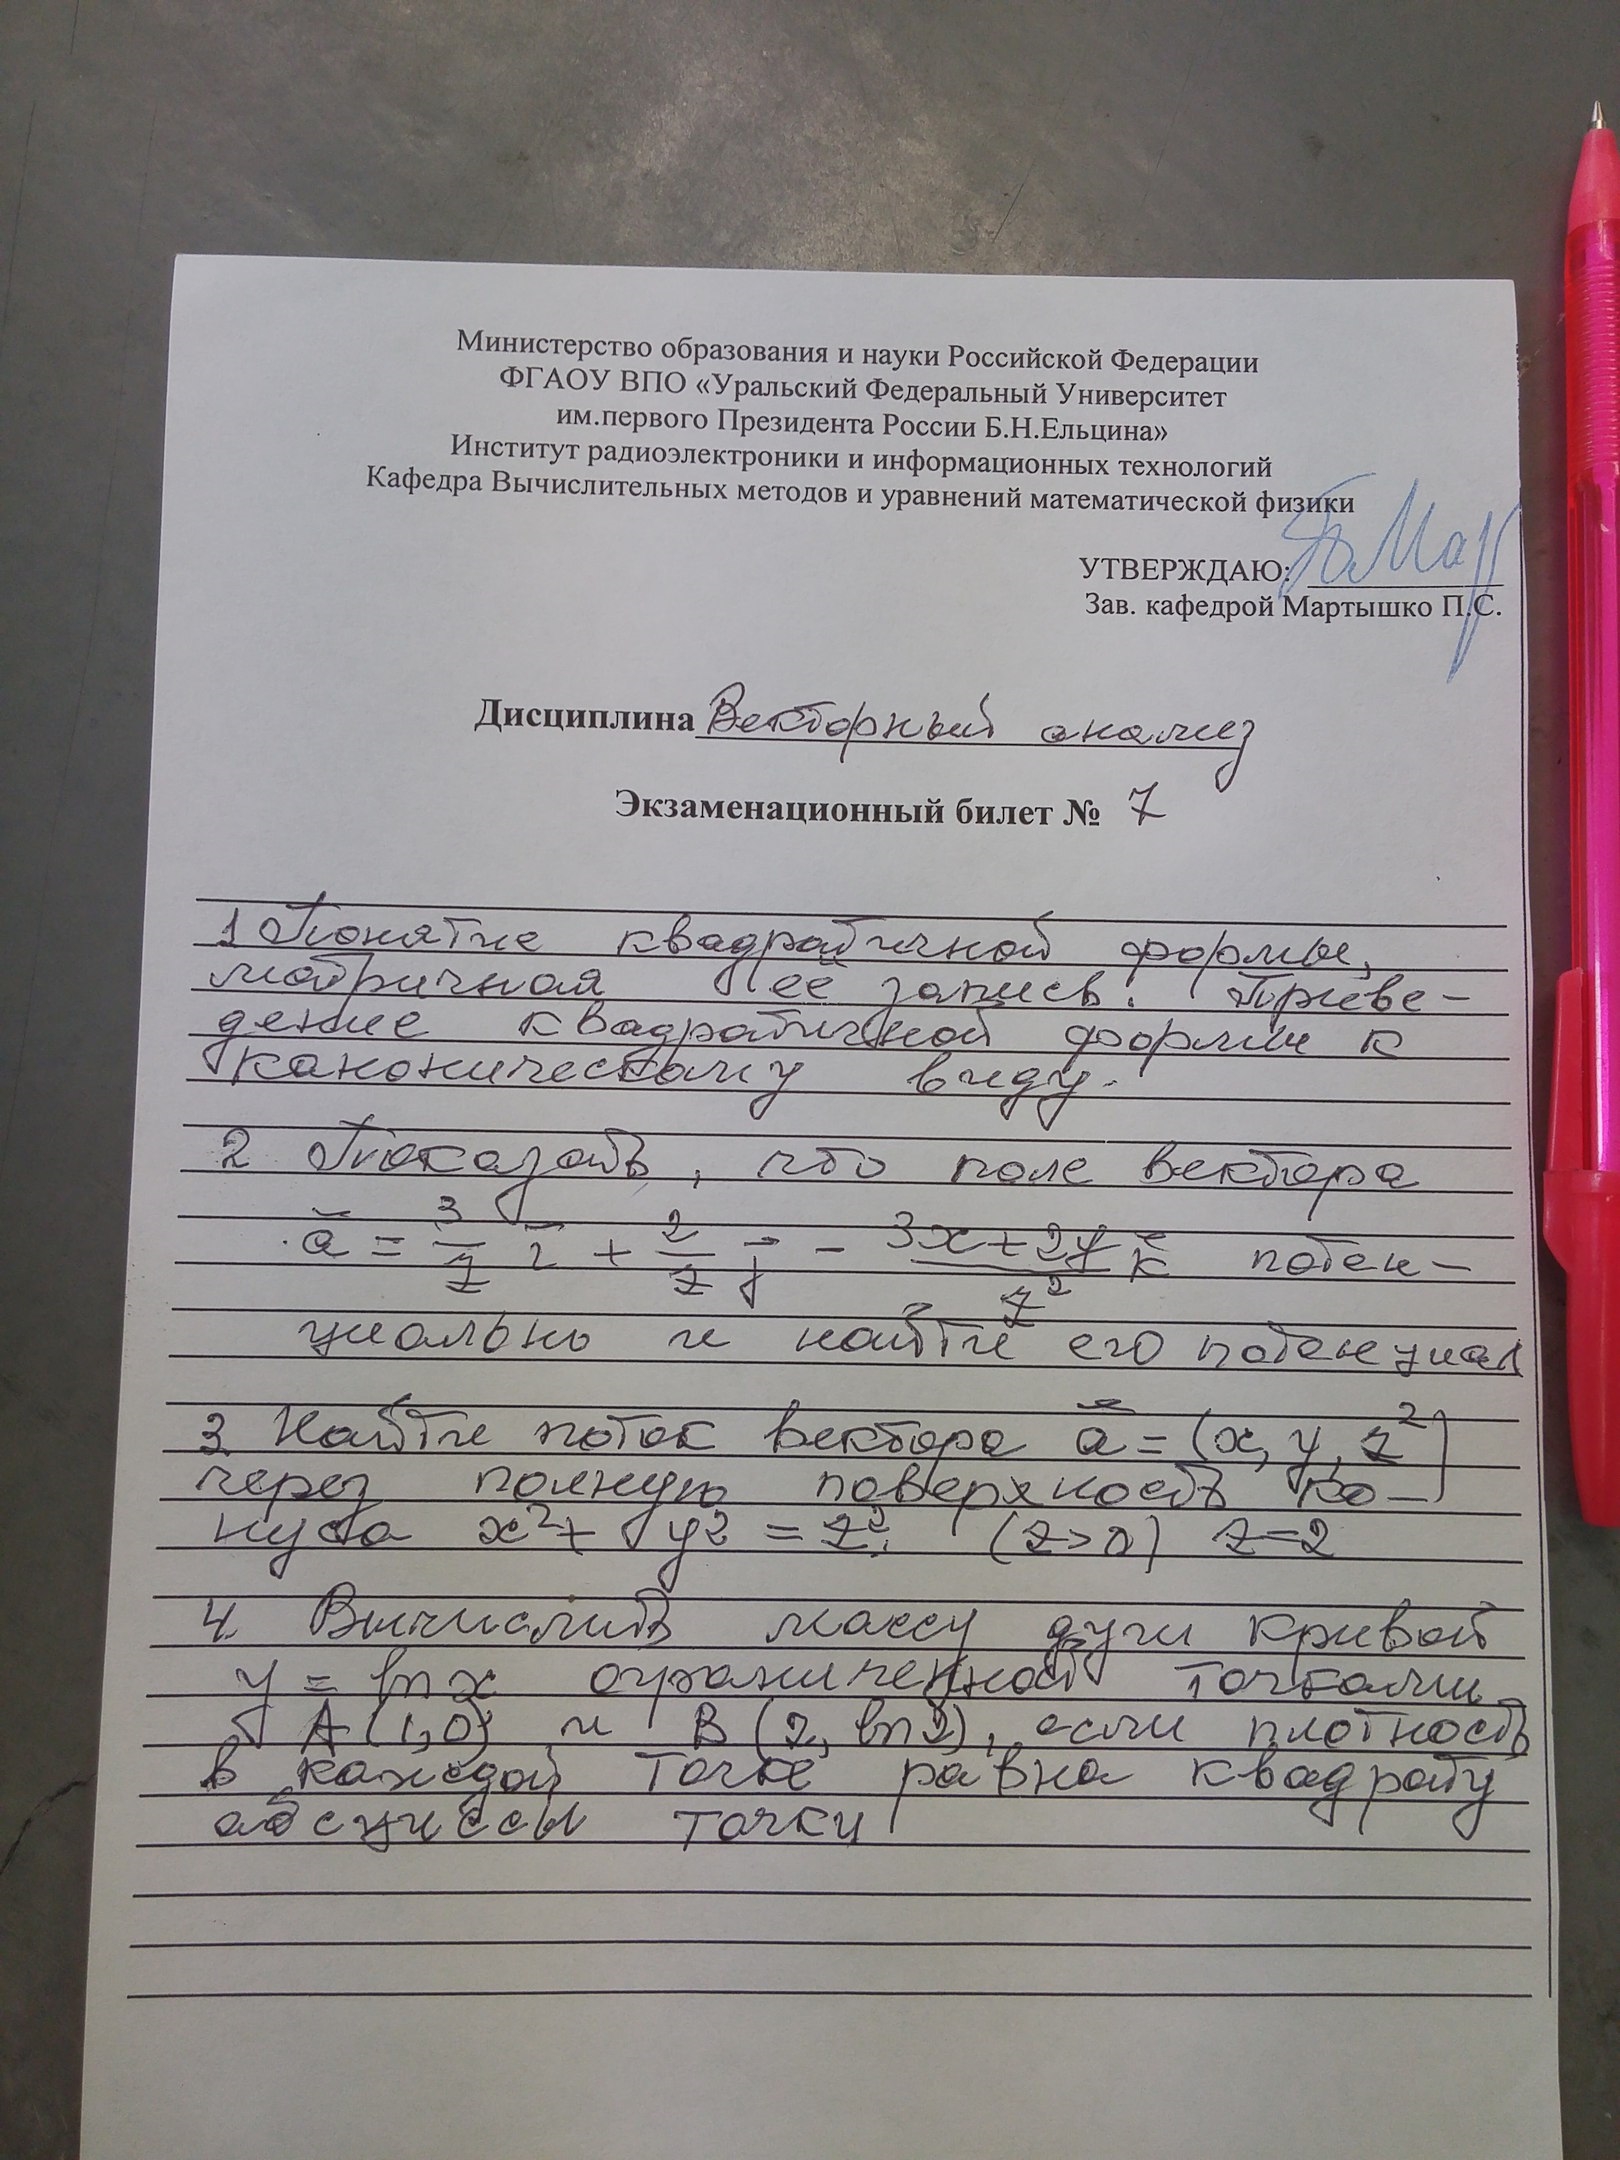 Министерство образования и науки Российской Федерации
ФГАОУ ВПО «Уральский Федеральный Университет
им.первого Президента России Б.Н.Ельцина»
Институт радиоэлектроники и информационных технологий
Кафедра Вычислительных методов и уравнений математической физики
УТВЕРЖДАЮ:
Зав. кафедрой Мартышко П.С.
Дисциплина Векторный анализ
Экзаменационный билет № 7
1 Понятие квадратичной формы,
матричная её запись. Приве-
дение квадратичной формы к
каноническому виду.
2 Показать, что поле вектора
ā = 3/z i + 2/z j - (3x+2y)/z² k потен-
циально и найти его потенциал
3. Найти поток вектора ā = (x, y, z²)
через полную поверхность ко-
нуса x² + y² = z². (z>0) z=2
4. Вычислить массу дуги кривой
y = ln x ограниченной точками
A(1,0) и B(2, ln2), если плотность
в каждой точке равна квадрату
абсциссы точки